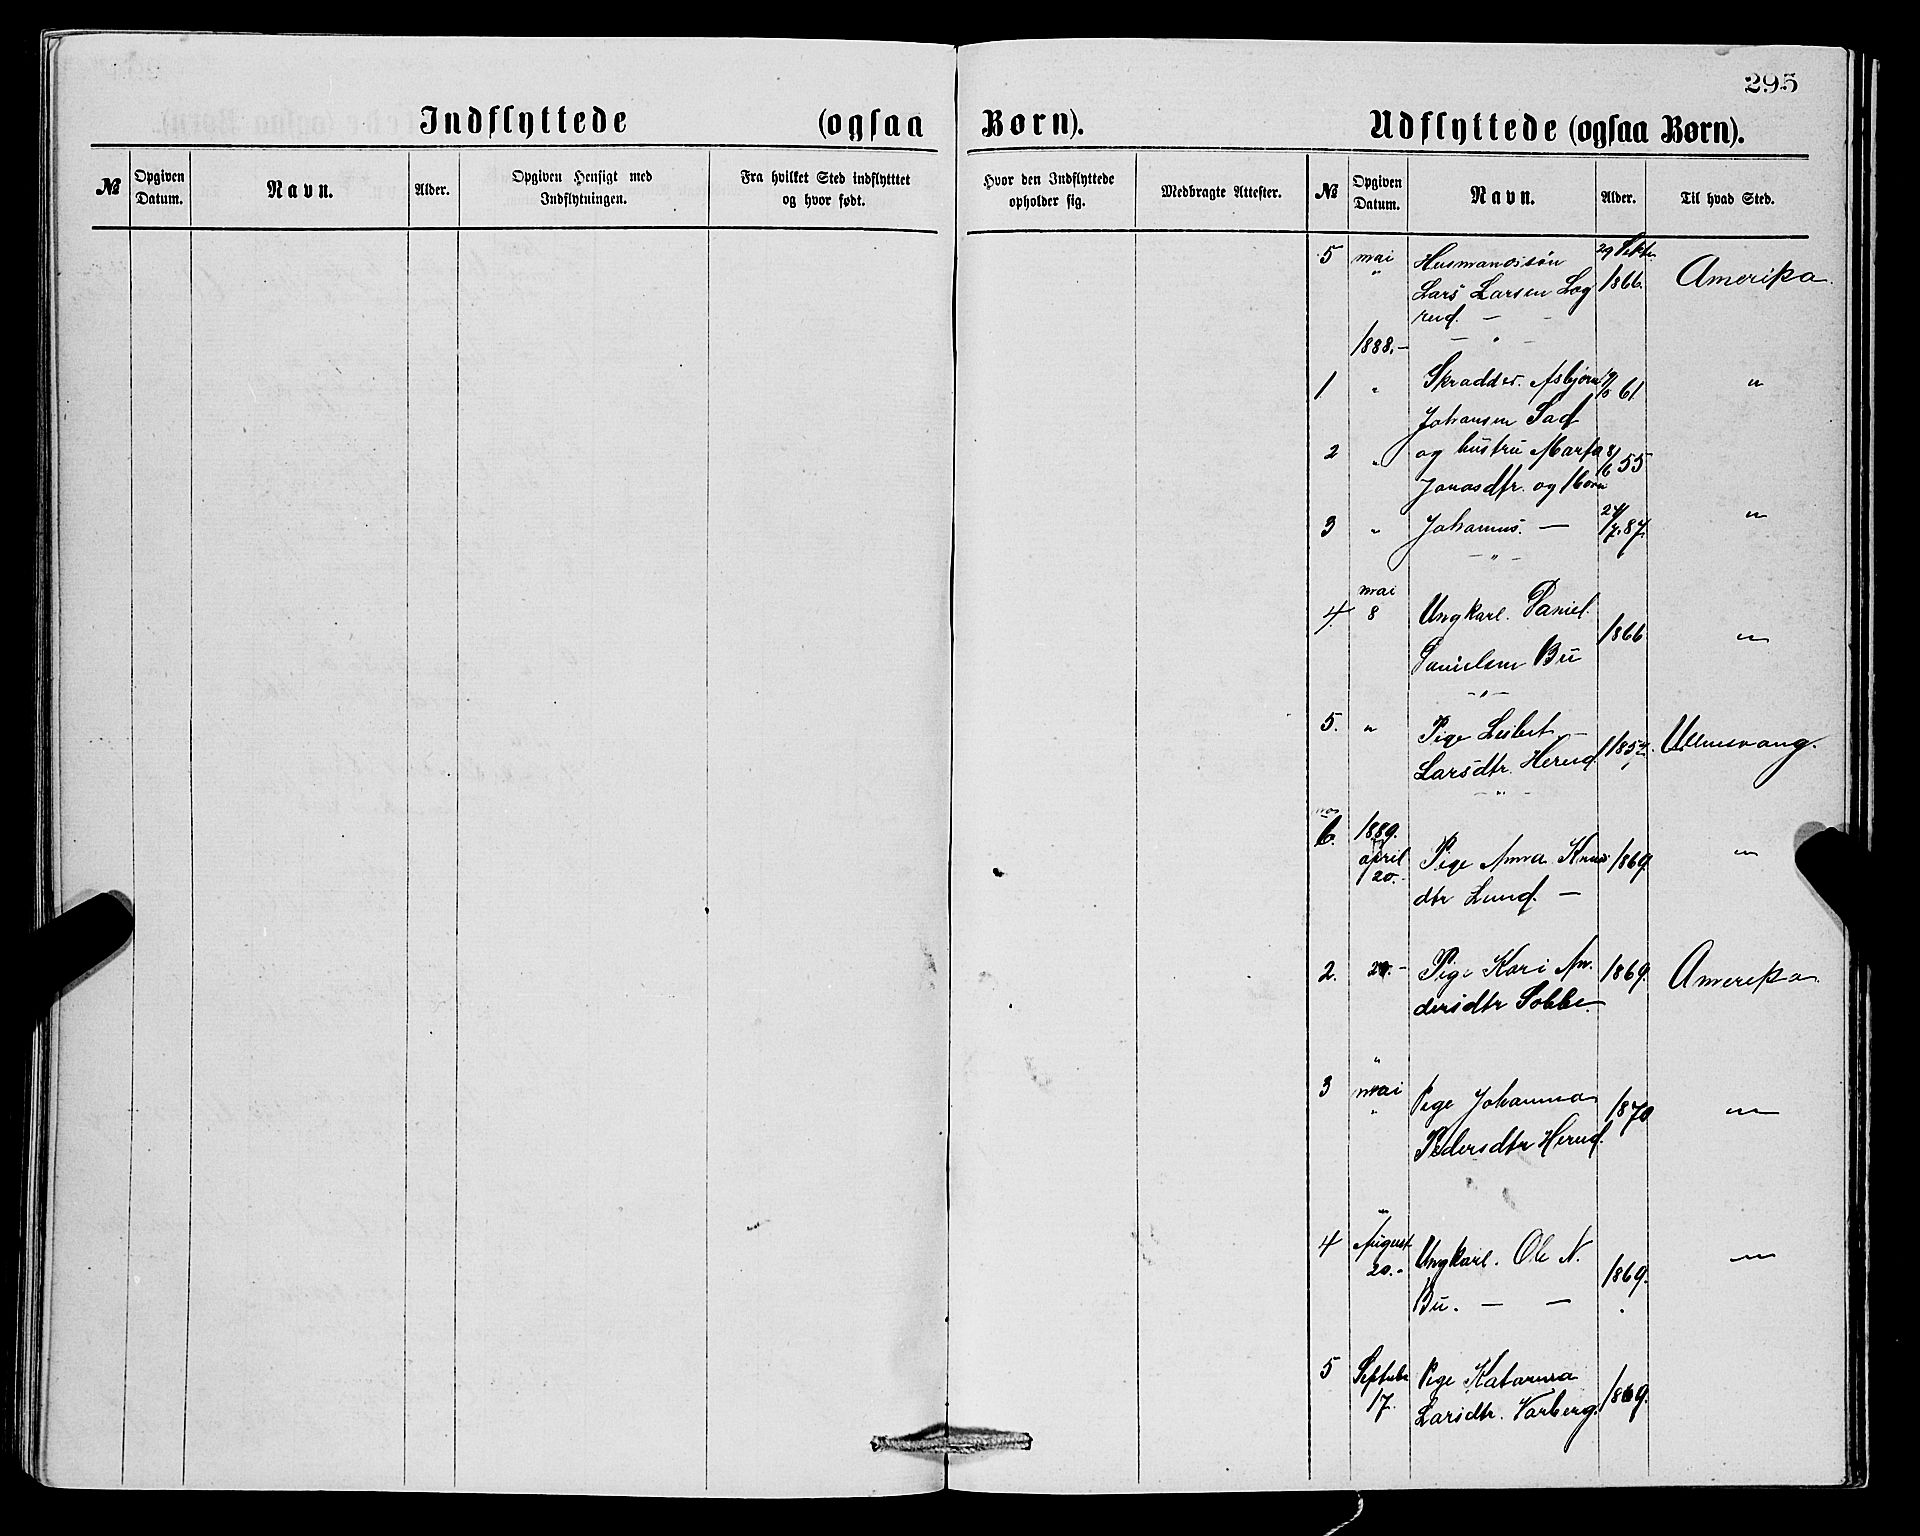 295
Indflyttede (ogsaa Børn).
Udflyttede (ogsaa Børn).
№ Opgiven Datum. Navn. Alder. Opgiven Hensigt med Indflytningen. Fra hvilket Sted indflytttet og hvor født. Hvor den Indflyttede opholder sig. Medbragte Attester. № Opgiven Datum. Navn. Alder. Til hvad Sted.
5 mai Husmandssøn 29 Septr
" Lars Larsen Log 1866. Amerika.
rud. —
1888.— — " —
1 " Skrædder. Asbjørn 61 "
Johansen Sad
2 " og hustru Marta 8/6 55
Jonasdtr. og 1 barn
3 " Johannes. — 24/7.87. "
— " —
mai
4. 8 Ungkarl. Daniel 1866 "
Danielsen Bu
— " —
5. " Pige
Larsdtr. Herud Ullensvang.
— " —
6. 1889.
april Pige Anna Knuds 1869. "
20.- dtr Lund. —
2. Pige Kari An- 1869. Amerika.
dersdtr
"
3 mai Pige Johanna 1870 "
" Pedersdtr Herud.
"
4 August Ungkarl. Ole N. 1869. "
20.- Bu. — —
5 Septbr Pige Katarina 1869.
17. Larsdtr. Varberg.